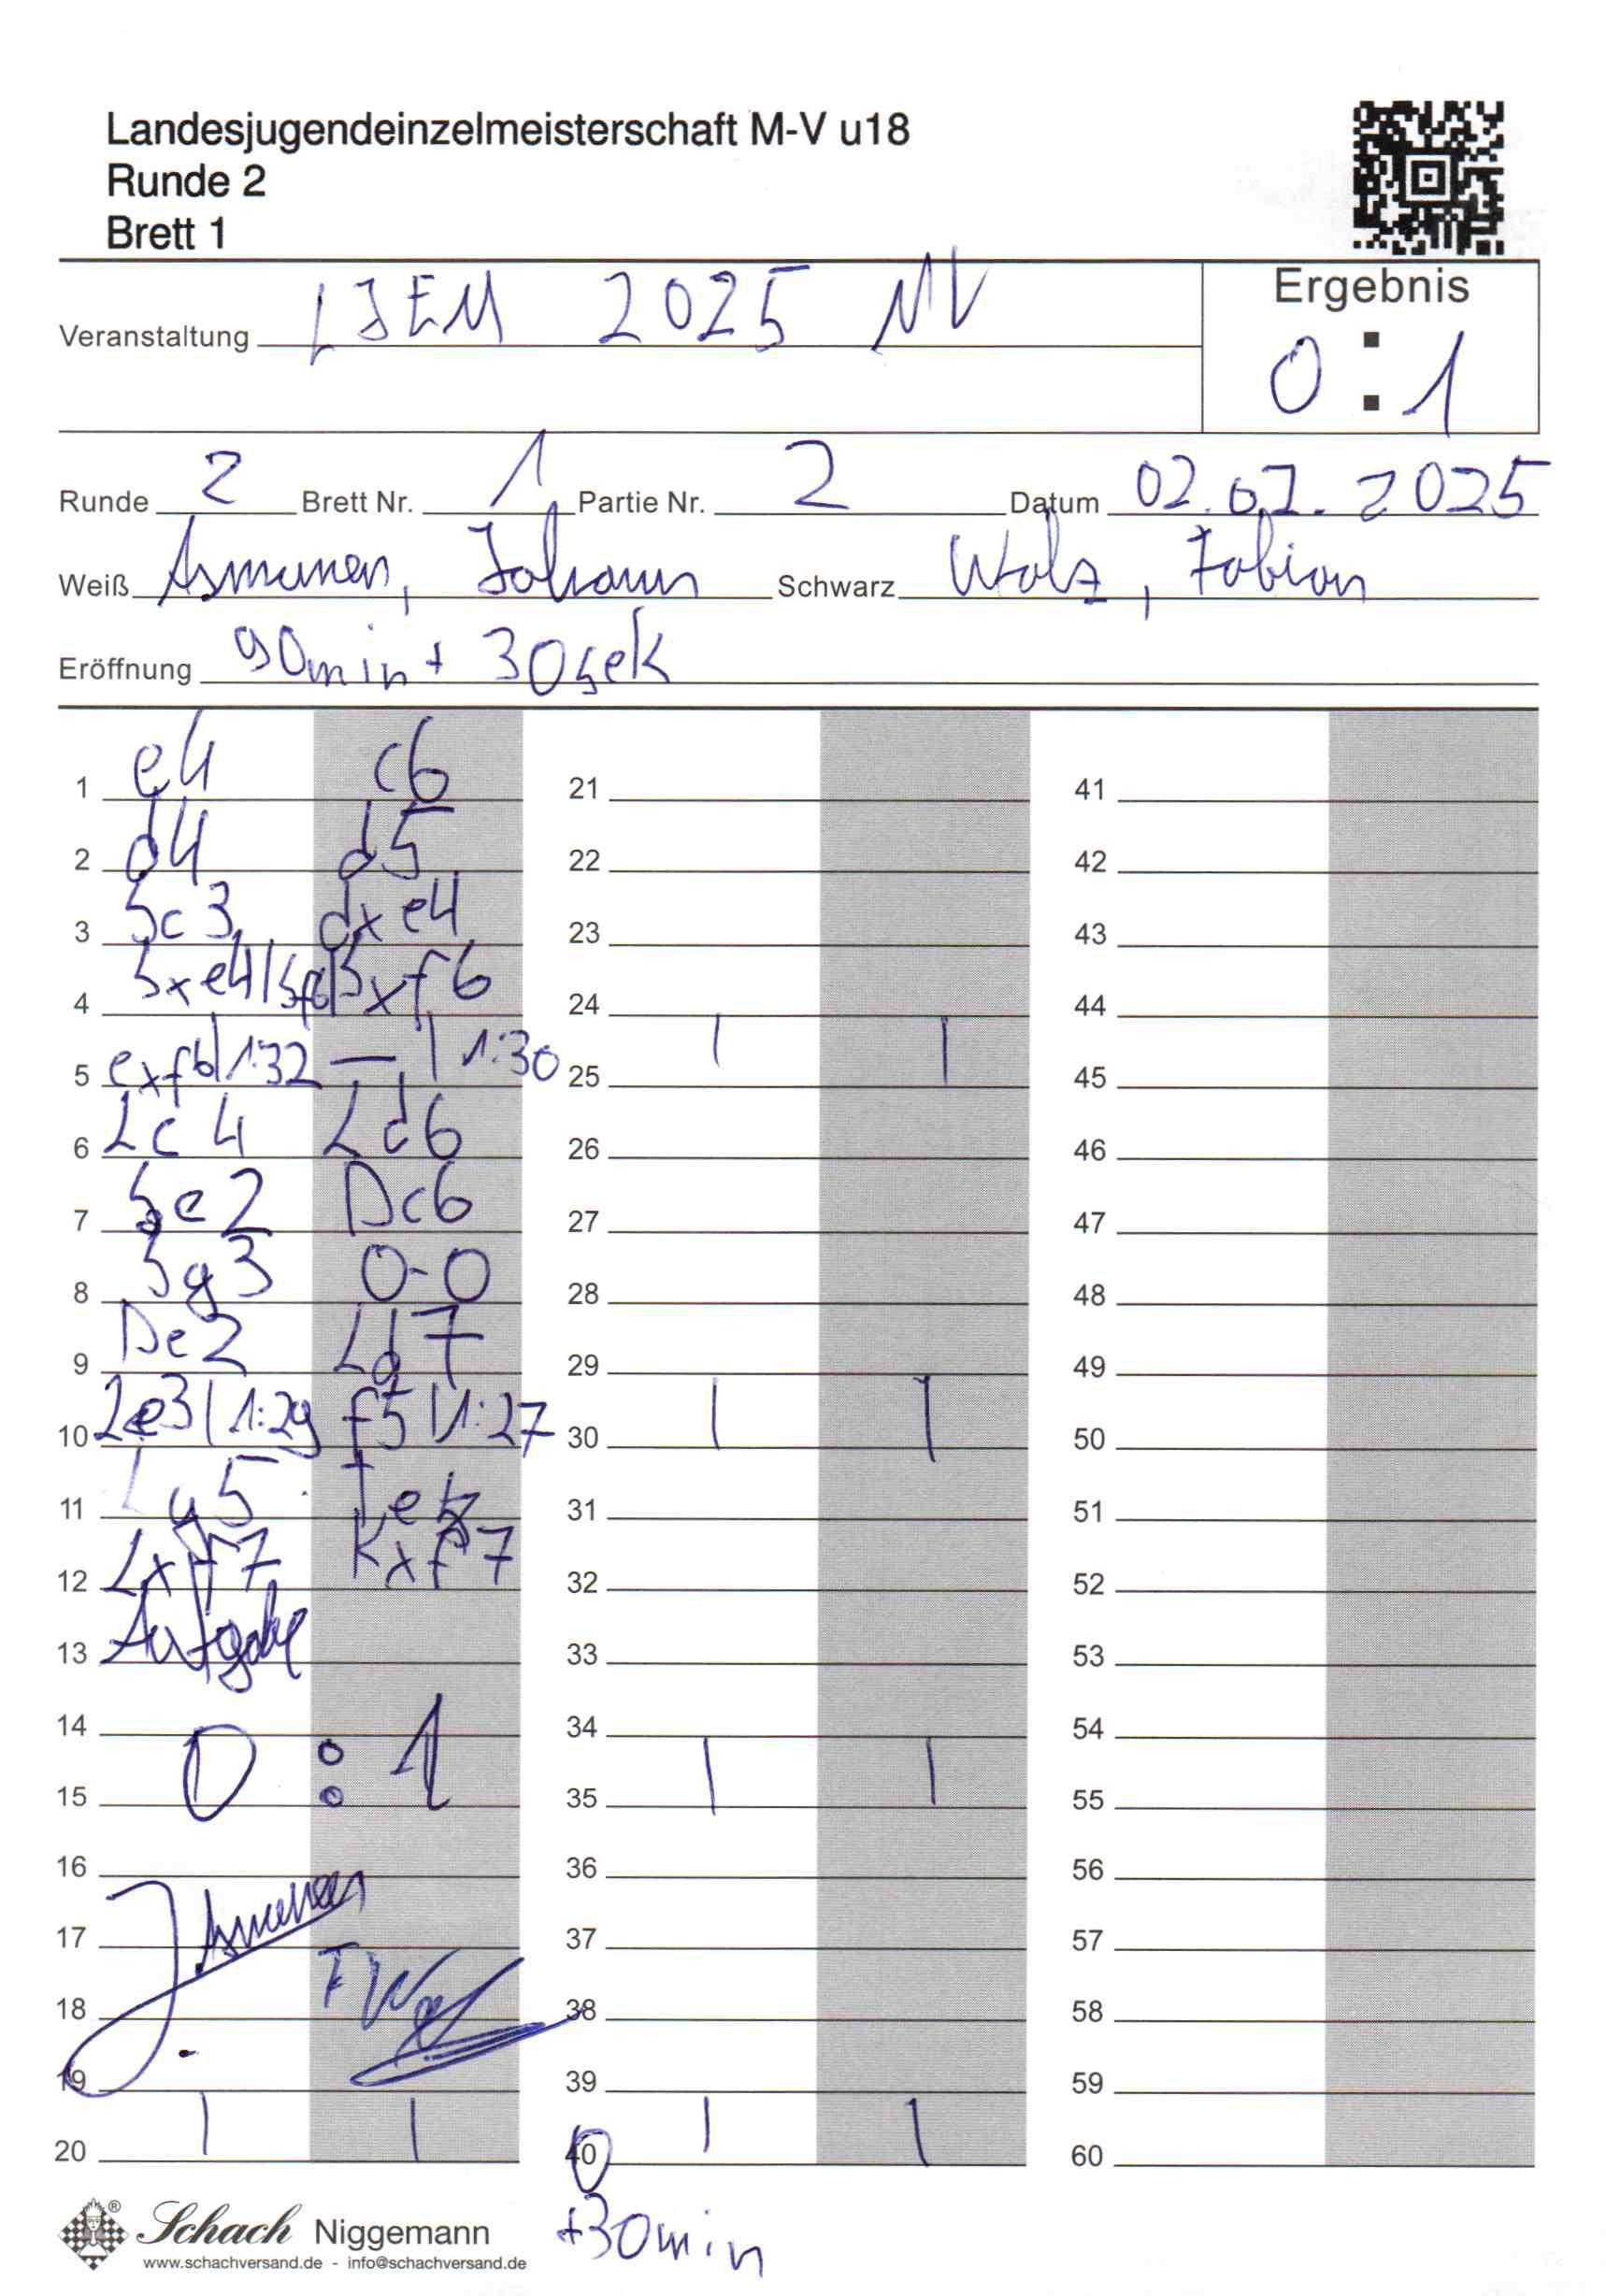 Landesjugendeinzelmeisterschaft M-V u18
Runde 2
Brett 1
Ergebnis
0 : 1
Veranstaltung LJEM 2025 MV
Runde 2 Brett Nr. 1 Partie Nr. 2 Datum 02.07.2025
Weiß Asmussen, Johann Schwarz Walz, Fabian
Eröffnung 90min + 30sek
1 e4 c6 21 41
2 d4 d5 22 42
3 Sc3 dxe4 23 43
4 Sxe4|Sf6| Sxf6 24 44
5 exf6|1:32 — | 1:30 25 | | 45
6 Lc4 Ld6 26 46
7 Se2 Dc6 27 47
8 Sg3 0-0 28 48
9 De2 Ld7 29 49
10 Le3|1:29 f5|1:27 30 | | 50
11 Lg5 Te8 31 51
12 Lxf7 Kxf7 32 52
13 Aufgabe 33 53
14 34 54
0 : 1
15 35 | | 55
16 36 56
J. Asmussen
17 37 57
18 38 58
19 39 59
20 | | 40 | | 60
0
+30min
Schach Niggemann
www.schachversand.de - info@schachversand.de